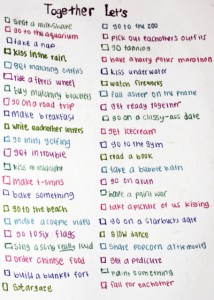 Together Let's
split a milkshake
go to the aquarium
take a nap
kiss in the rain
get matching outfits
ride a ferris wheel
buy matching bracelets
go on a road trip
make breakfast
write eachother letters
go mini golfing
get in trouble
kiss at midnight
make t-shirts
bake something
go to the beach
make a couple video
go to six flags
sing a song really loud
order chinese food
build a blanket fort
stargaze
go to the zoo
pick out eachother's outfits
go tanning
have a harry potter marathon
kiss underwater
watch fireworks
fall asleep on the phone
get ready together
go on a classy-ass date
get icecream
go to the gym
read a book
take a bubble bath
go on a run
have a paint war
take a picture of us kissing
go on a starbucks date
slow dance
share popcorn at the movies
get a pedicure
paint something
fall for eachother